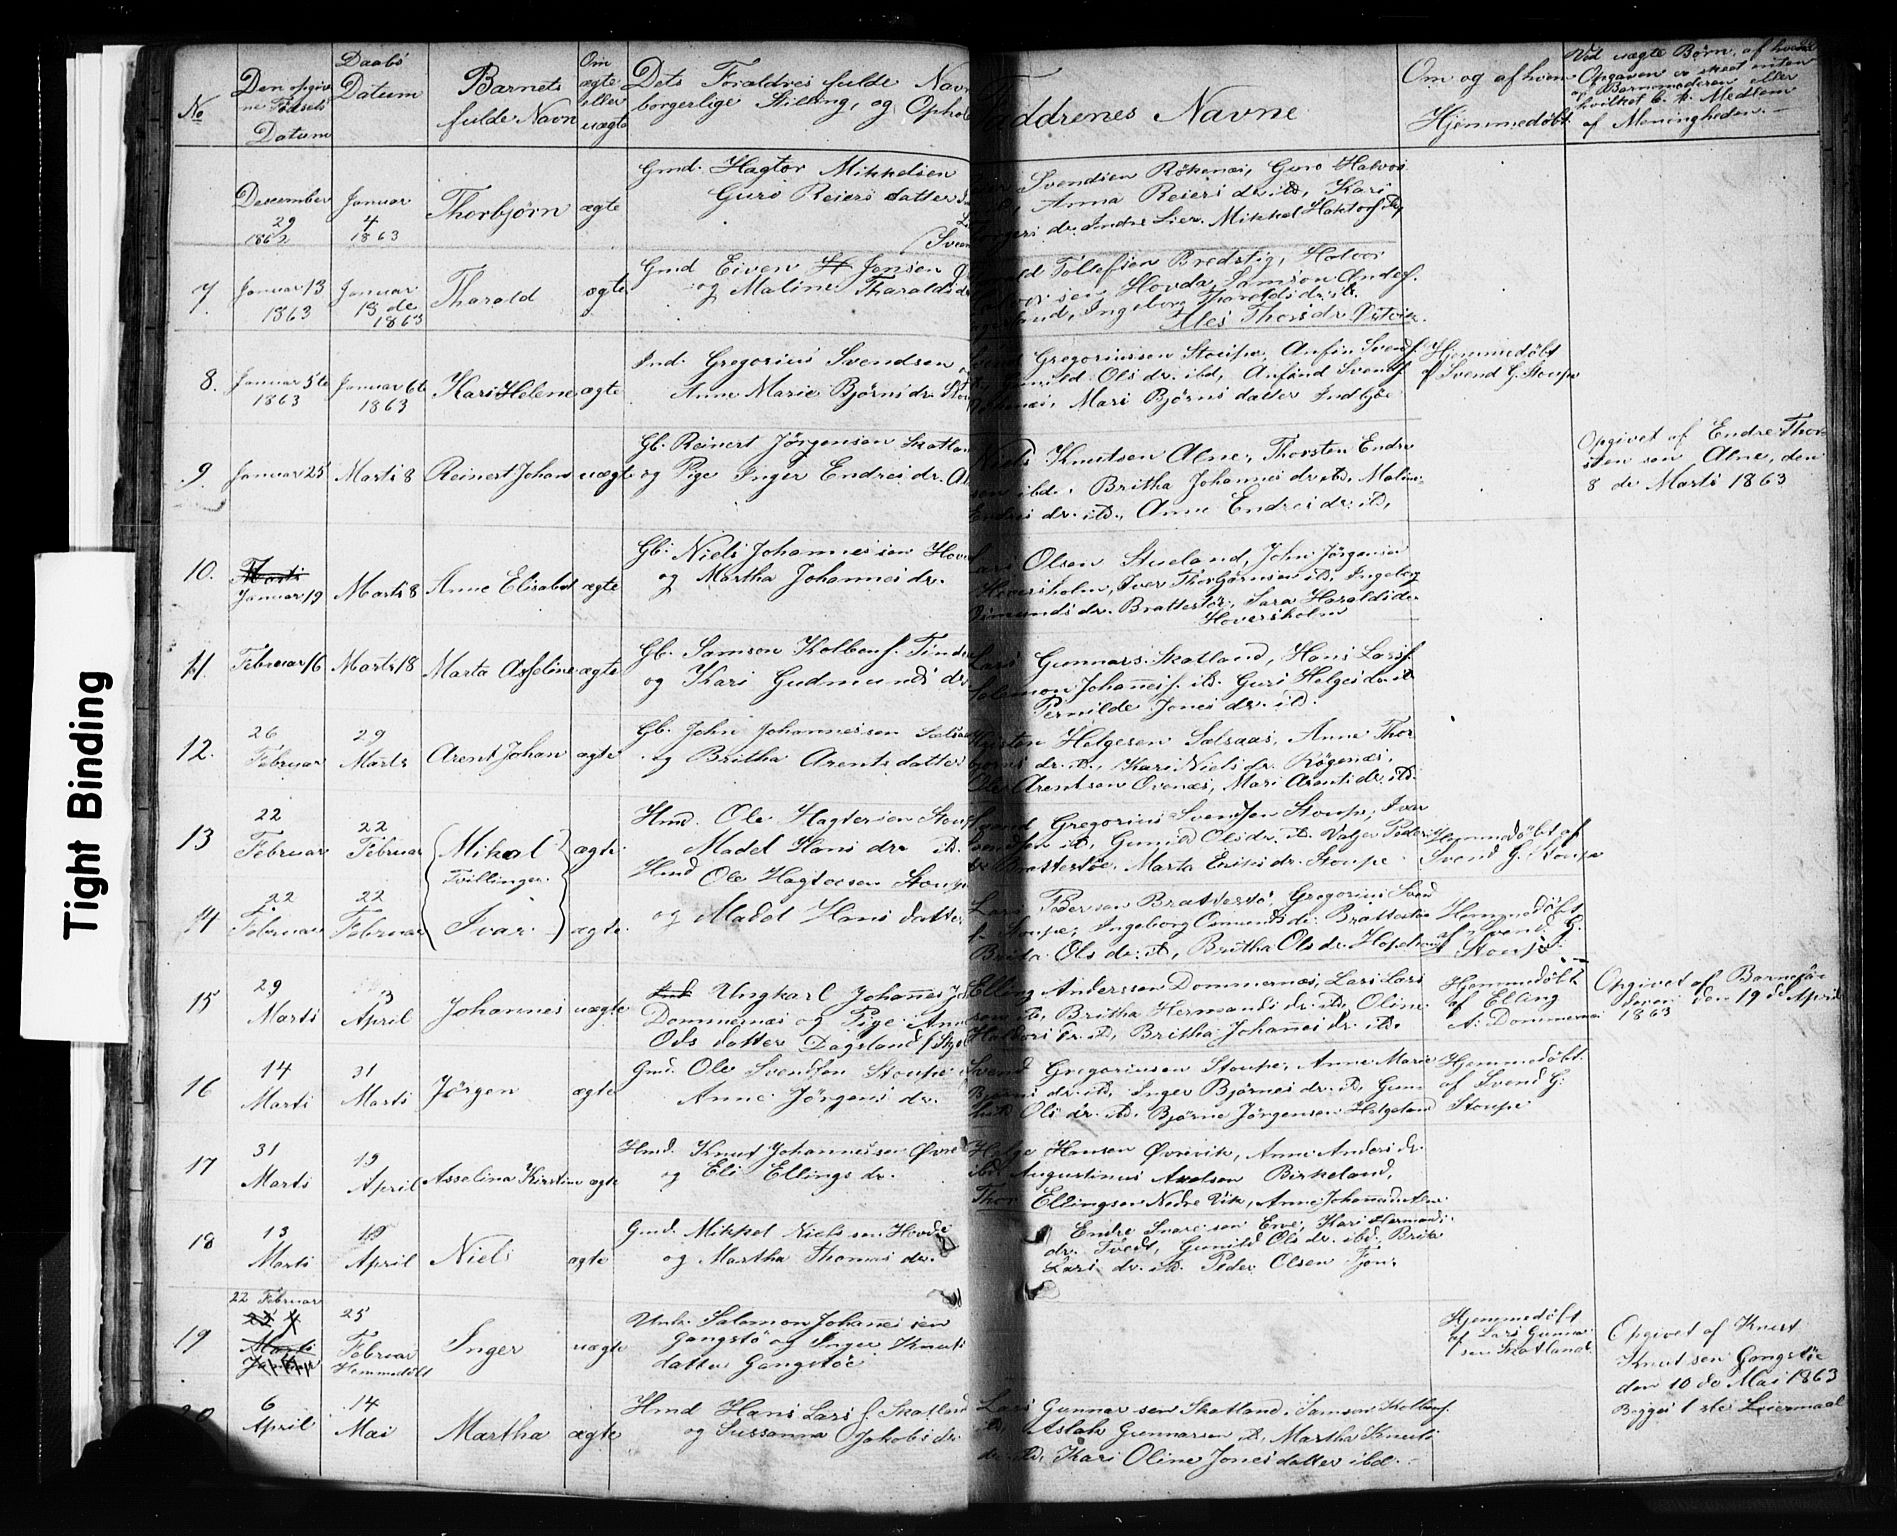 Tight Binding
No
Den opgiv
ne Fødsels
Datum
Daabs
Datum
Barnets
fulde Navn
Om
ægte
eller
uægte
Dets Forældres fulde Navn
borgerlige Stilling, og Ophold
Faddrenes Navne
Om og af hvem
Hjemmedøbt
Ved uægte Børn, af hvem
Opgaven er skeet enten
af Barnemoderen eller
hvilket b. k. Medlem
af Menigheden.
December
29
1862
Januar
4
1863
Thorbjørn
ægte
Gmd. Hagtor Mikkelsen
Guro Reiers datter
Svendsen Rökenæs, Guro Halvors
Anna Reiers dr. ibd, Kari
dr. Indre Lier. Mikkel Haktors
7.
Januar 13
1863
Januar
18 de
1863
Tharald
ægte
Gmd Eiven Jonsen
og Maline Tharalds dr
Tollefsen Bredstig, Halvor
sen Hovda, Samson Anders.
Ingeborg Tharalds dr. ib.
Ales Thors dr. Vitvik
8.
Januar 5te
1863
Januar 6te
1863
Kari Helene
ægte
Ind. Gregorius Svendsen
Anne Marie Bjørns dr.
Gregoriussen Stoupe, Anfin Svends
Ols dr. ibd, Anfind Svends
Mari Bjørns datter Indbjoe
Hjemmedøbt
af Svend G. Stoupe
9
Januar 25
Marts 8
Reinert Johan
uægte
Gb. Reinert Jørgensen Skatland
og Pige Inger Endres dr. Al
Niels Knutsen Alne, Thorsten Endre
sen ibd. Britha Johannes dr. ibd, Malin
Endres dr. ibd., Anne Endres dr. ib,
Opgivet af Endre Thor
sten sen Alne, den
8 de Marts 1863
10.
Januar 19
Marts 8
Anne Elisabet
ægte
Gb. Niels Johannes sen
og Martha Johannes dr.
Lars Olsen Stueland, John Jørgensen
Hoversholm, Iver Thorbjørnsen ib, Ingeborg
Osmunds dr. Brattestöe, Sara Haralds dr
Hoversholm
11.
Februar 16
Marts 18
Marta Asseline
ægte
Gb. Samson Kolbens.
og Kari Gudmunds dr
Lars Gunnars. Skatland, Hans Lars
Salomon Johannes s. ib. Guri Helges dr. ib
Pernilde Jones dr. ib.
12.
26
Februar
29
Marts
Arent Johan
ægte
Gb. John Johannessen
og Britha Arents datter
Helgesen Sælsaas, Anne Thor
bjørns dr. ib. Kari Niels dr. Røgenæs,
Ole Arentsen Ovenæs, Mari Arents dr. ib.
13
22
Februar
22
Februar
Mikal
Tvillinger
ægte
Hmd. Ole Hagtorsen Stoupe
Madel Hans dr ib.
Svend Gregorius Svendsen Stoupe, Ivar
Svendsen ib, Gunild Ols dr. ib. Valger Peders
dr Brattestøe, Marta Eriks dr. Stoupe
Hjemmedøbt af
Svend G. Stoupe
14
22
Februar
22
Februar
Ivar
ægte
Hmd Ole Hagtorsen Stoupe
og Madel Hans datter
Lars Peder sen Brattestö, Gregorius Svend
s. Stoupe, Ingeborg Osmunds dr. Brattestöe
Berta Ols dr. ib, Britha Ols dr.
Hjemmedøbt
af Svend G.
Stoupe
15
29
Marts
13
April
Johannes
uægte
Ungkarl Johannes
Dommersnæs og Pige Anne
Ols datter Dagsland
Elling Anderssen Dommersnæs, Lars Lars
sen ib, Britha Hermands dr. ib, Oline
Halvors dr. ib, Britha Johannes dr. ib.
Hjemmedøbt
af Elling
A. Dommersnæs
Opgivet af Barnefa
deren den 19 de April
1863
16
14
Marts
31
Marts
Jörgen
ægte
Gmd. Ole Svendsen Stoupe
Anne Jörgens dr.
Svend Gregoriussen Stoupe, Anne Marie
Bjørns dr. ib, Inger Bjørnes dr. ib, Gun
hild Ols dr. ib. Bjørne Jørgensen Helgeland
Hjemmedøbt
af Svend G.
Stoupe
17
31
Marts
19
April
Asselina Kirstine
ægte
Hmd. Knut Johannessen Øvre
og Eli Ellings dr.
Helge Hansen Øvrevik, Anne Anders dr
ibd Augustinus Axelsen Birkeland,
Thor Ellingsen Nedre Vik, Anne Johannes
18
13
Marts
19
April
Niels
ægte
Gmd. Mikkel Niels sen Hovde
og Martha Thomas dr.
Endre Snare sen Erve, Kari Hermands
dr. Tvedt, Gunild Ols dr. ibd. Brita
Lars dr. ib. Peder Olsen
19
22 Februar
25
Februar
Hjemmedøbt
Inger
uægte
Unk. Salomon Johannes sen
Gangstö og Inger Knuts
datter Gangstöe
Hjemmedøbt
af Lars Gunna
sen Skatland
Opgivet af Knut
Knut sen Gangstöe
den 10 de Mai 1863
Begges 1 ste Leiermaal
20
6
April
14
Mai
Martha
ægte
Hmd Hans Lars s. Skatland
og Sussanna Jakobs dr
Lars Gunnar sen Skatland, Samson Kolbens.
ib, Aslak Gunnarsen ib, Martha Knuts
dr. ib, Kari Oline Jones datter ibd.